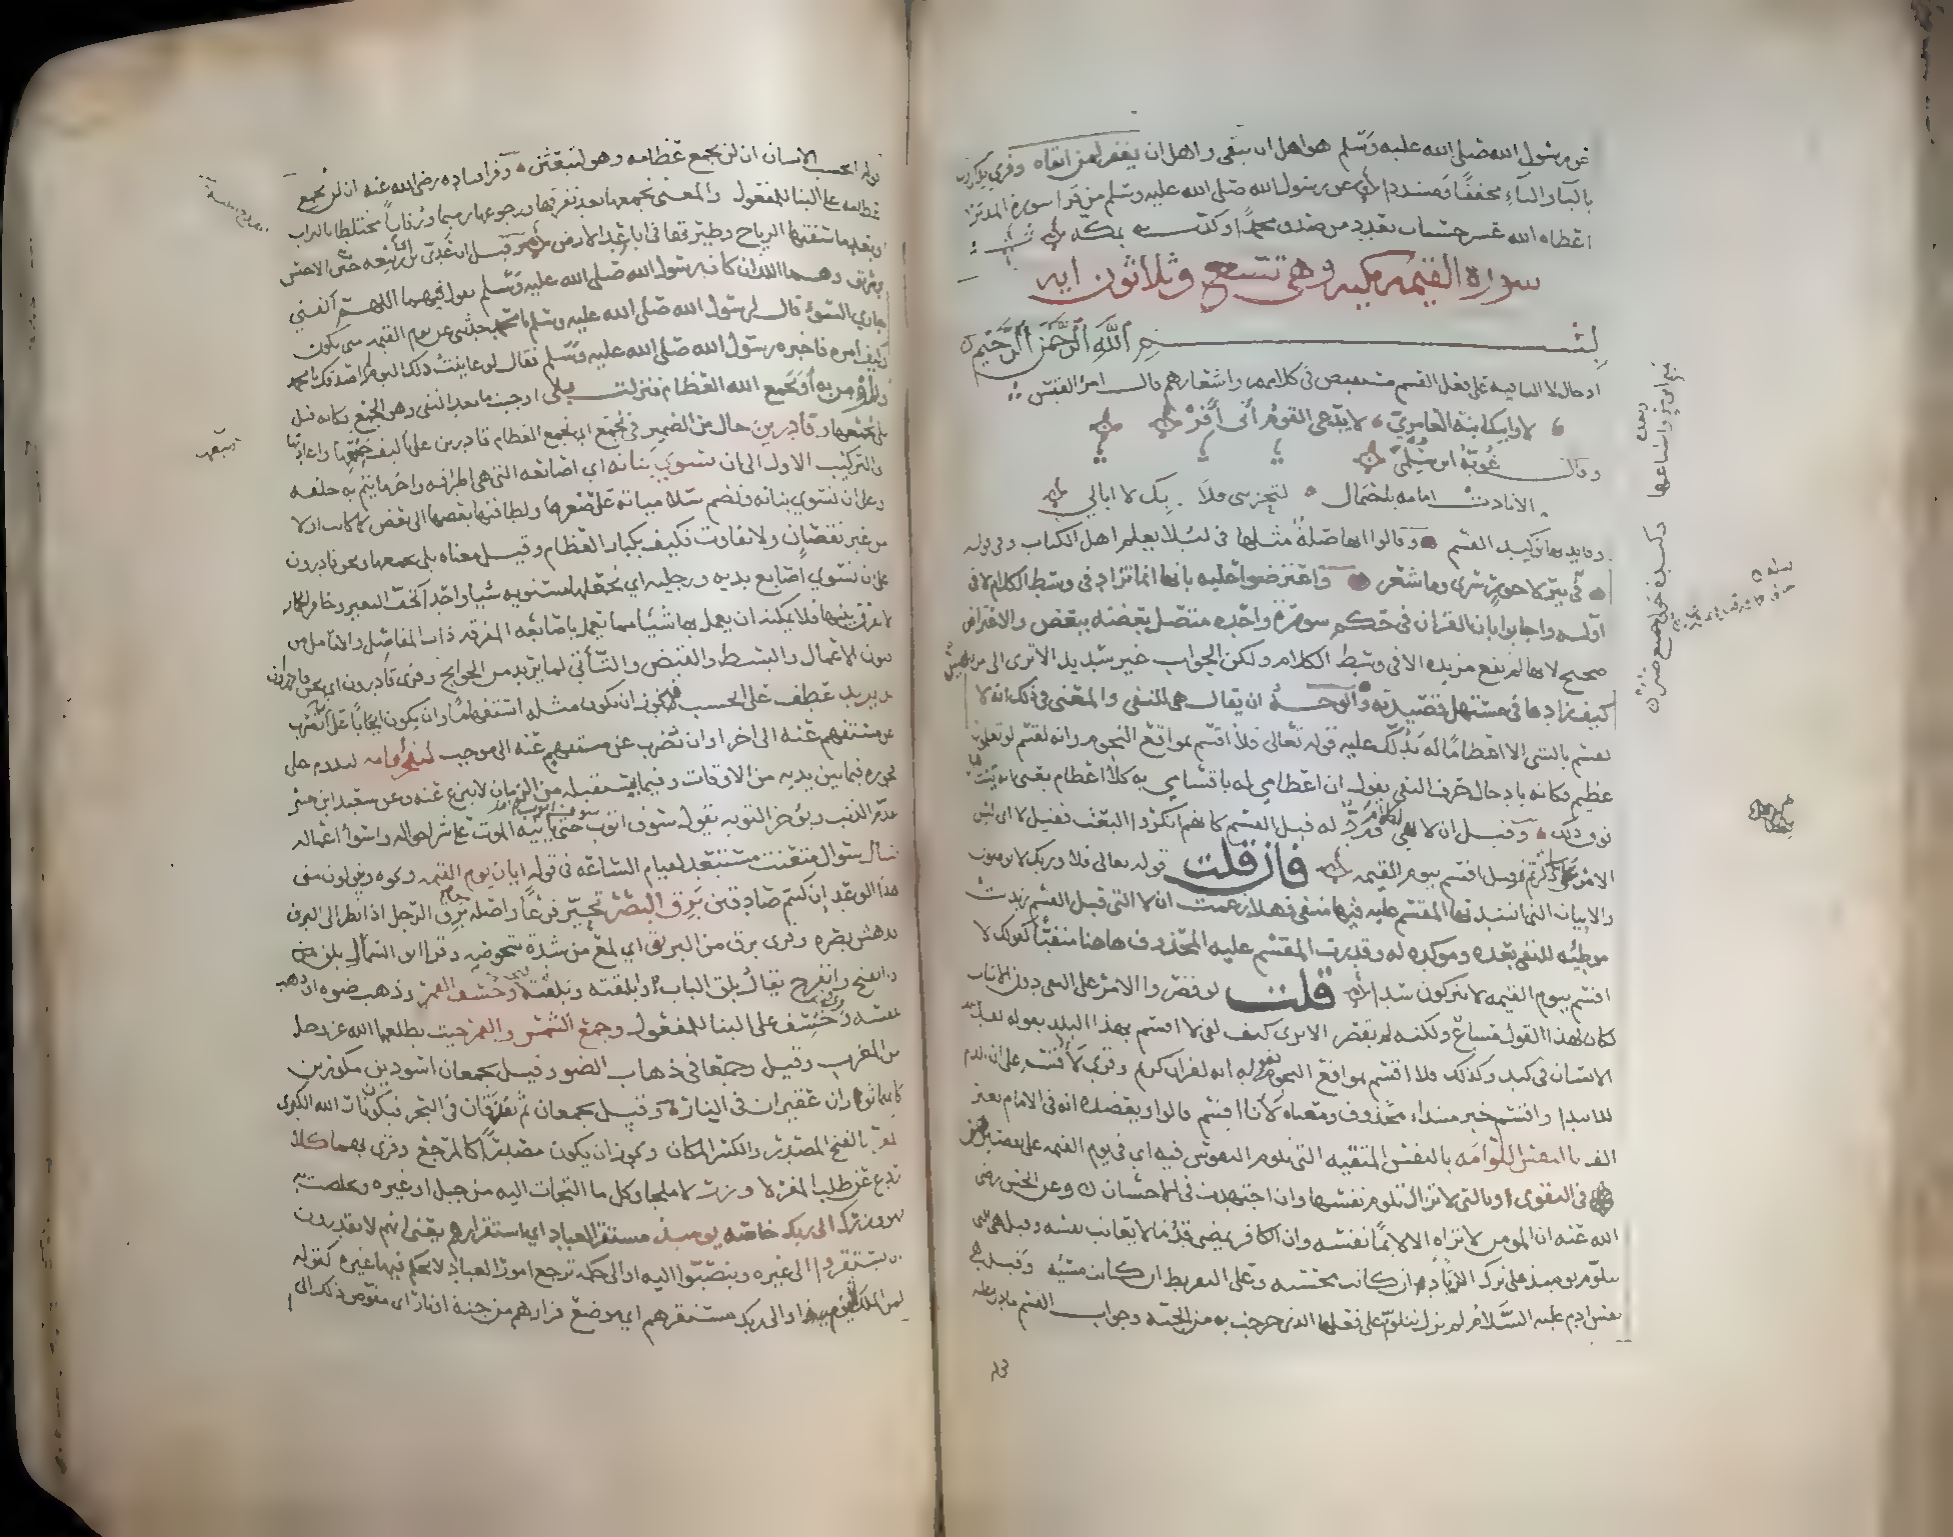 عن رسول الله صلى الله عليه وسلم هو اهل ان يتقى واهل ان يغفر لمن اتقاه وقري يذكرون
بالياء والتاء مخففا ومشددا عن رسول الله صلى الله عليه وسلم من قرا سورة المدثر
اعطاه الله عشر حسنات بعدد من صدق بمحمد او كذب به بمكة
سورة القيمه مكيه وهي تسع وثلاثون ايه
بسم الله الرحمن الرحيم
ادخال لا النافية على فعل القسم مستفيض في كلامهم واشعارهم قال امرؤ القيس
لا وابيك ابنة العامري لا يدعي القوم أني أفر
وقال غوية ابن سلمى
الا نادت امامه باحتمال لتحزنني فلا بك لا ابالي
وفايدتها توكيد القسم وقالوا انها صلة مثلها في لئلا يعلم اهل الكتاب وفي قوله
في بئر لا حور سرى وما شعر واعترضوا عليه بانها انما تزاد في وسط الكلام لا في
اوله واجابوا بان القران في حكم سورة واحدة متصل بعضه ببعض والاعتراض
صحيح لانها لم تقع مزيدة الا في وسط الكلام ولكن الجواب غير سديد الا ترى الى امرئ القيس
كيف زادها في مستهل قصيدته والوجه ان يقال هي للنفي والمعنى في ذلك انه لا
يقسم بالشي الا اعظاما له يدلك عليه قوله تعالى فلا اقسم بمواقع النجوم وانه لقسم لو تعلمون
عظيم فكانه بادخال حرف النفي يقول ان اعظامي له باقسامي به كلا اعظام يعني انه يستاهل
فوق ذلك وقيل ان لا نفي لكلام ورد له قبل القسم كانهم انكروا البعث فقيل لا اي ليس
الامر على ما ذكرتم ثم قيل اقسم بيوم القيمه فان قلت قوله تعالى فلا وربك لا يومنون
والابيات التي انشدتها المقسم عليه فيها منفي فهلا زعمت ان لا التي قبل القسم زيدت
موطية للنفي بعده وموكدة له وقدرت المقسم عليه المحذوف هاهنا منفيا كقولك لا
اقسم بيوم القيمه لا تتركون سدا قلت لو قصروا الامر على النفي دون الاثبات
لكان لهذا القول مساغ ولكنه لم يقصر الا ترى كيف لقي لا اقسم بهذا البلد بقوله لقد خلقنا
الانسان في كبد وكذلك فلا اقسم بمواقع النجوم بقوله انه لقران كريم وقري لأقسم على ان اللام
للابتدا واقسم خبر مبتداء محذوف ومعناه لأنا اقسم قالوا ويعضده انه في الامام بغير
الف بالنفس اللوامه بالنفس المتقيه التي تلوم النفوس فيه اي في يوم القيمه على تقصيرهن
في التقوى او بالتي لا تزال تلوم نفسها وان اجتهدت في الاحسان وعن الحسن رضي
الله عنه ان المومن لا تراه الا لائما نفسه وان الكافر يمضي قدما لا يعاتب نفسه وقيل هي التي
تتلوم يومئذ على ترك الازدياد ان كانت محسنه وعلى التفريط ان كانت مسيئه وقيل هي
نفس ادم عليه السلام لم تزل تتلوم على فعلها الذي خرجت به من الجنه وجواب القسم ما دل عليه
قوله ايحسب الانسان ان لن نجمع عظامه وهو لتبعثن وقرا قتاده رضي الله عنه ان لن تجمع
عظامه على البنا للمفعول والمعنى نجمعها بعد تفرقها ورجوعها رميما ورفاتا مختلطا بالتراب
وبعد ما سفتها الرياح وطيرتها في اباعد الارض وقيل ان عدي بن ابي ربيعه ختن الاخنس
بن شريق وهما اللذان كان رسول الله صلى الله عليه وسلم يقول فيهما اللهم اكفني
جاري السوء قال لرسول الله صلى الله عليه وسلم يا محمد حدثني عن يوم القيمه متى يكون
وكيف امره فاخبره رسول الله صلى الله عليه وسلم فقال لو عاينت ذلك اليوم لم اصدقك يا محمد
ولم أومن به أو يجمع الله العظام فنزلت بلى اوجبت ما بعد النفي وهو الجمع فكانه قيل
بلى نجمعها وقادرين حال من الضمير في نجمع اي نجمع العظام قادرين على تاليف جميعها واعادتها
الى التركيب الاول الى ان نسوي بنانه اي اصابعه التي هي اطرافه واخر ما يتم به خلقه
او على ان نسوي بنانه ونضم سلامياته على صغرها ولطافتها بعضها الى بعض كما كانت اولا
من غير نقصان ولا تفاوت فكيف بكبار العظام وقيل معناه بلى نجمعها ونحن قادرون
على ان نسوي اصابع يديه ورجليه اي نجعلها مستويه شيا واحدا كخف البعير وحافر الحمار
لا نفرق بينها فلا يمكنه ان يعمل بها شيئا مما يعمل باصابعه المفرقه ذات المفاصل والانامل من
فنون الاعمال والبسط والقبض والتأتي لما يريد من الحوايج وقري قادرون اي نحن قادرون
بل يريد عطف على ايحسب فيجوز ان يكون مثله استفهاما وان يكون ايجابا على ان يضرب
عن مستفهم عنه الى اخر او ان يضرب عن مستفهم عنه الى موجب ليفجر أمامه ليدوم على
فجوره فيما بين يديه من الاوقات وفيما يستقبله من الزمان لا ينزع عنه وعن سعيد ابن جبير
يقدم الذنب ويؤخر التوبه يقول سوف اتوب حتى ياتيه الموت على شر احواله واسوا اعماله
يسال سؤال متعنت مستبعد لقيام الساعه في قوله ايان يوم القيمه ونحوه ويقولون متى
هذا الوعد ان كنتم صادقين برق البصر تحير فزعا واصله من برق الرجل اذا نظر الى البرق
فدهش بصره وقري برق من البريق اي لمع من شدة شخوصه وقرا ابو السمال بلق اذا
انفتح وانفرج يقال بلق الباب وابلقته وبلقته وخسف القمر وذهب ضوه او ذهب
بنفسه وقري خسف على البنا للمفعول وجمع الشمس والقمر حيث يطلعهما الله عز وجل
من المغرب وقيل وجمعا في ذهاب الضو وقيل يجمعان اسودين مكورين
كانهما ثوران عقيران في النار وقيل يجمعان ثم يقذفان في البحر فيكون نار الله الكبرى
المفر بالفتح المصدر وبالكسر المكان ويجوز ان يكون مصدرا كالمرجع وقري بهما كلا
ردع عن طلب المفر لا وزر لا ملجا وكل ما التجات اليه من جبل او غيره وتخلصت به
فهو وزرك الى ربك خاصه يومئذ مستقر العباد اي استقرارهم يعني انهم لا يقدرون
ان يستقروا الى غيره وينصبوا اليه او الى حكمه ترجع امور العباد لا يحكم فيها غيره كقوله
لمن الملك اليوم او الى ربك مستقرهم اي موضع قرارهم من جنة او نار اي مفوض ذلك الى